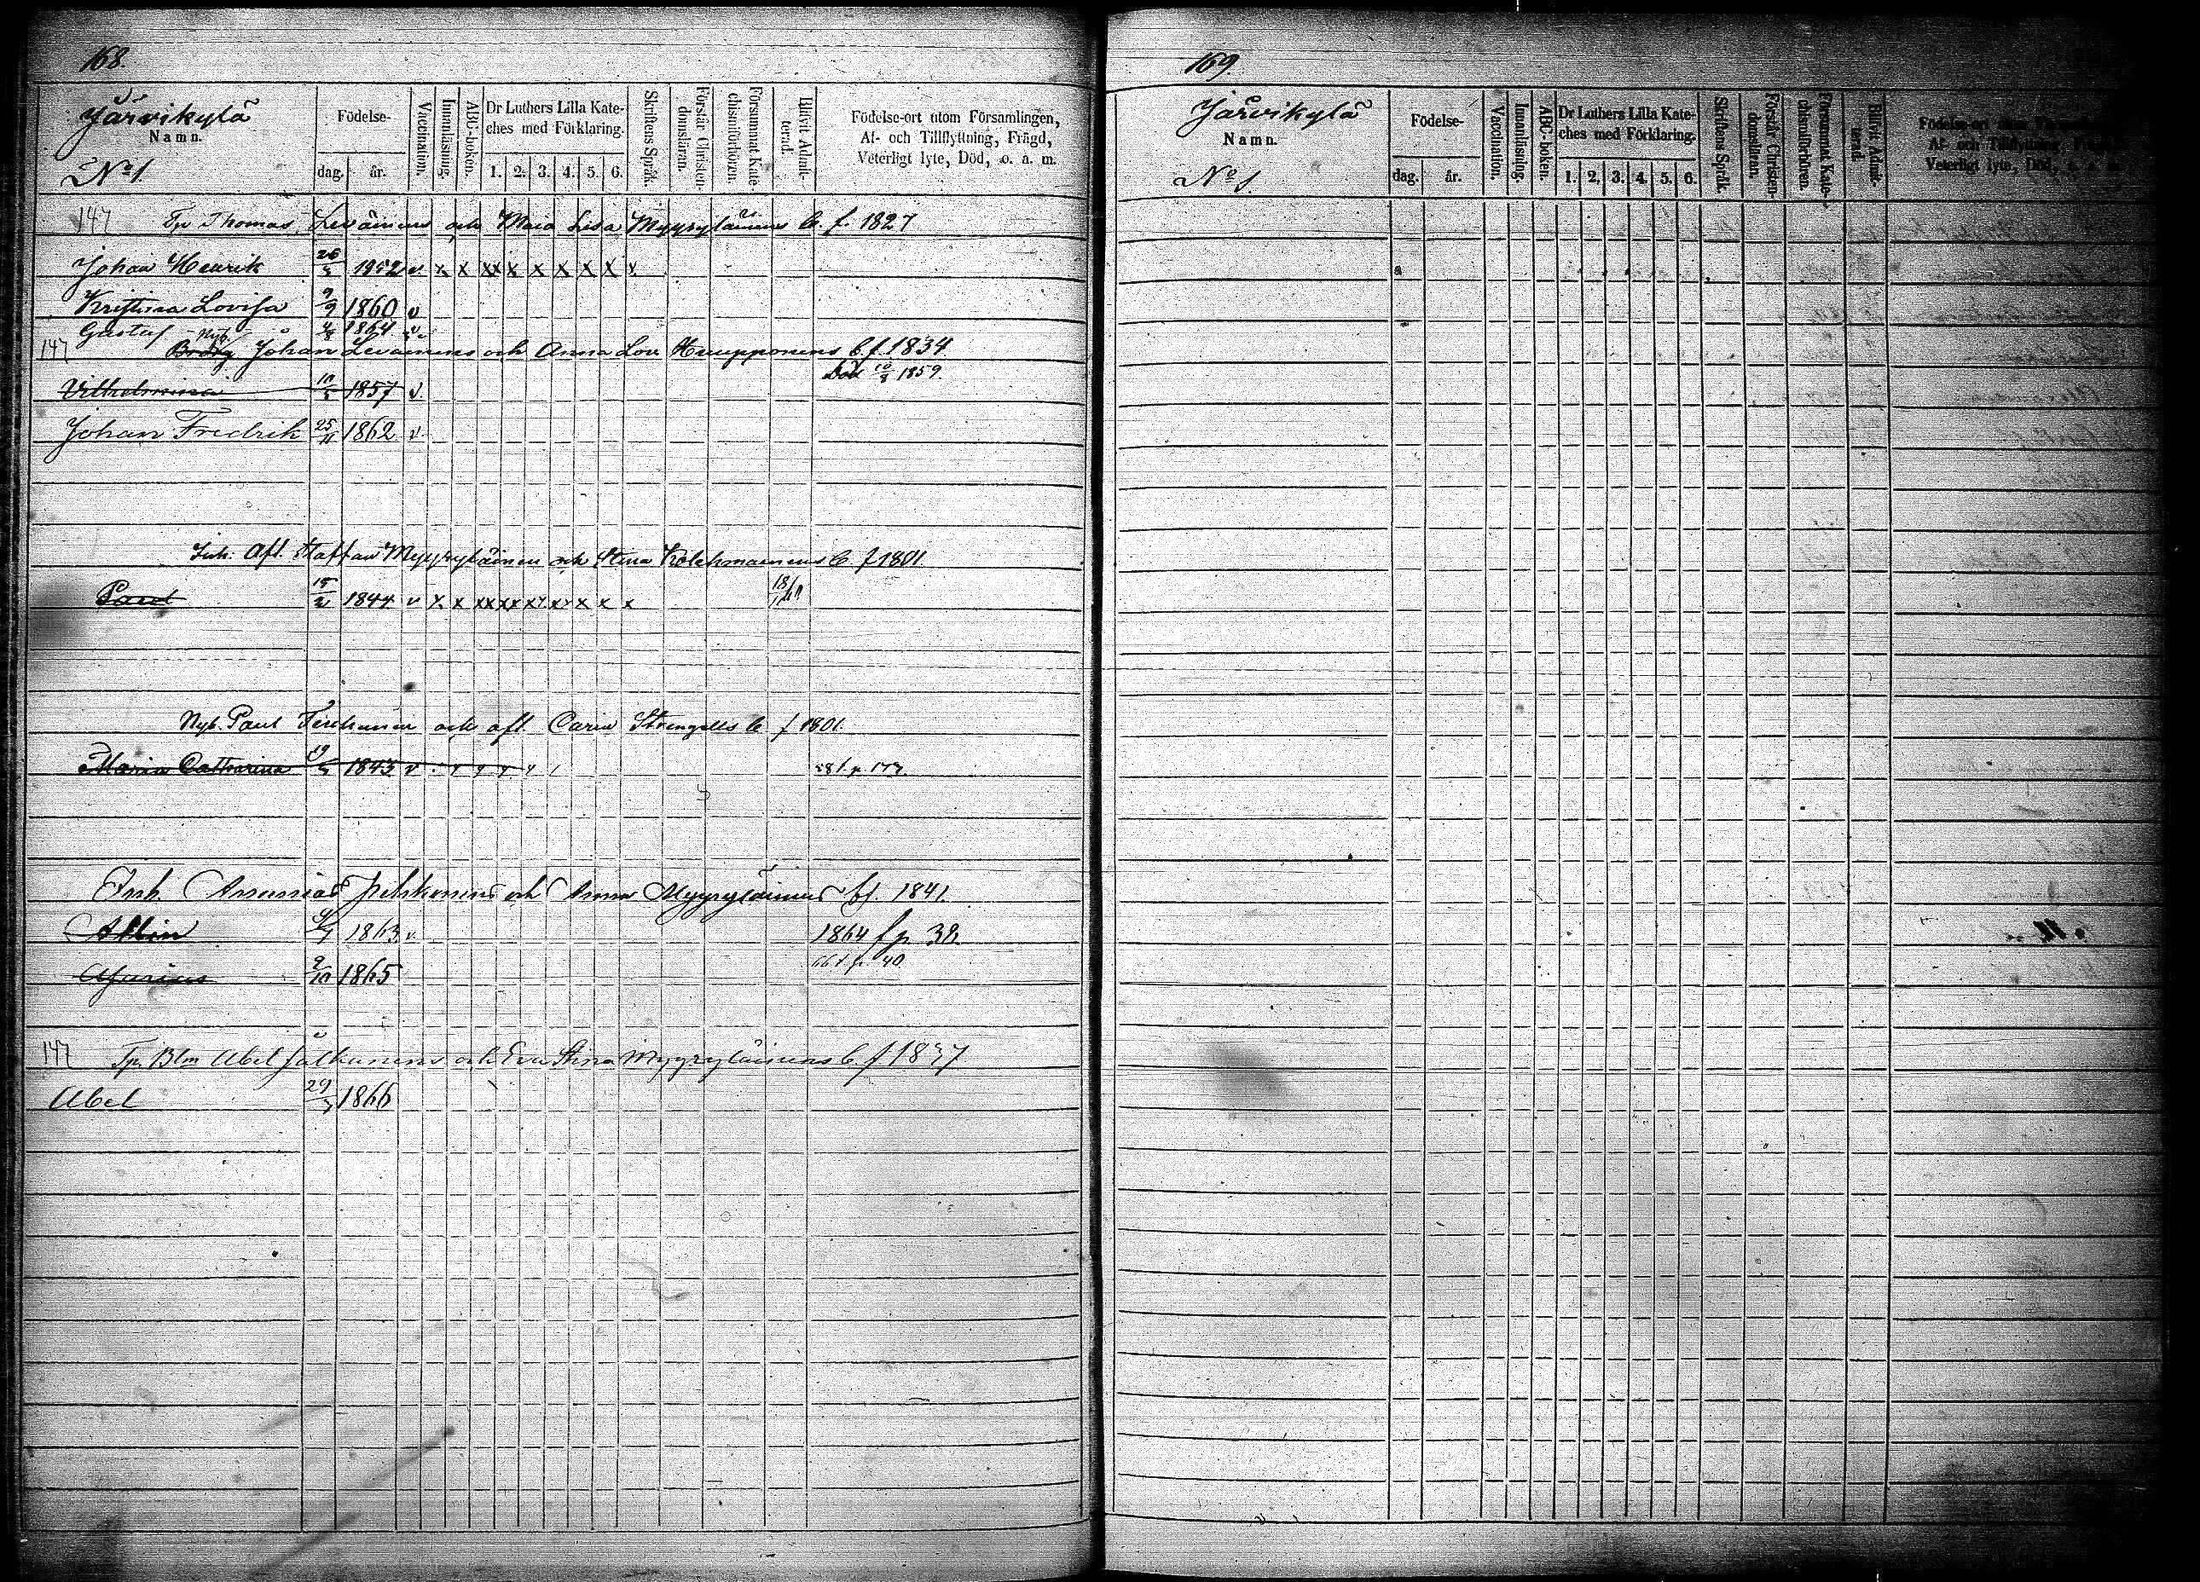 168.
Järvikylä
Namn.
No 1.
Födelse-
dag. år.
Vaccination.
Innanläsning.
ABC-boken.
Dr Luthers Lilla Kate-
ches med Förklaring.
1. 2. 3. 4. 5. 6.
Skriftens Språk.
Förstår Christen-
domsläran.
Försummat Kate-
chismiförhören.
Blifvit Admit-
terad.
Födelse-ort utom Församlingen,
Af- och Tillflyttning, Frägd,
Veterligt lyte, Död, o. a. m.
147 Tp Thomas Leväinens och Maia Lisa Myyryläinens b. f. 1827
Johan Henrik 26 1852 v x x xx x x x x x x
Kristina Lovisa 9/9 1860 v
Gustaf 1864 v
147 Nyb. Johan Leväinens och Anna Lov. Huupponens b. f. 1834
Död 10/8 1859.
Vilhelmina 1857 v.
Johan Fredrik 25/11 1862 v.
Inh. Afl. Staffan Myyryläinen och Stina Kolehmainens b. f 1801.
Paul 15/2 1844 v x x xx xx x x x x x
Nyb. Paul och afl. Carin Strengells b f 1801.
Maria Catharina 19 1843 v
58 f. p. 173.
Inh. Assarias Pitkonens och Anna Myyryläinens bf. 1841.
Albin 1863 v. 1864 f p 38.
Asarias 9/10 1865 66 f. p. 40
147 Tp. Blm Abel Jalkanens och Eva Stina Myyryläinens b. f 1837
Abel 29 1866
169.
Järvikylä
Namn.
No 1.
Födelse-
dag. år.
Vaccination.
Innanläsning.
ABC-boken.
Dr Luthers Lilla Kate-
ches med Förklaring.
1. 2. 3. 4. 5. 6.
Skriftens Språk.
Förstår Christen-
domsläran.
Försummat Kate-
chismiförhören.
Blifvit Admit-
terad.
Födelse-ort utom
Af- och Tillflyttning,
Veterligt lyte, Död, o. a. m.